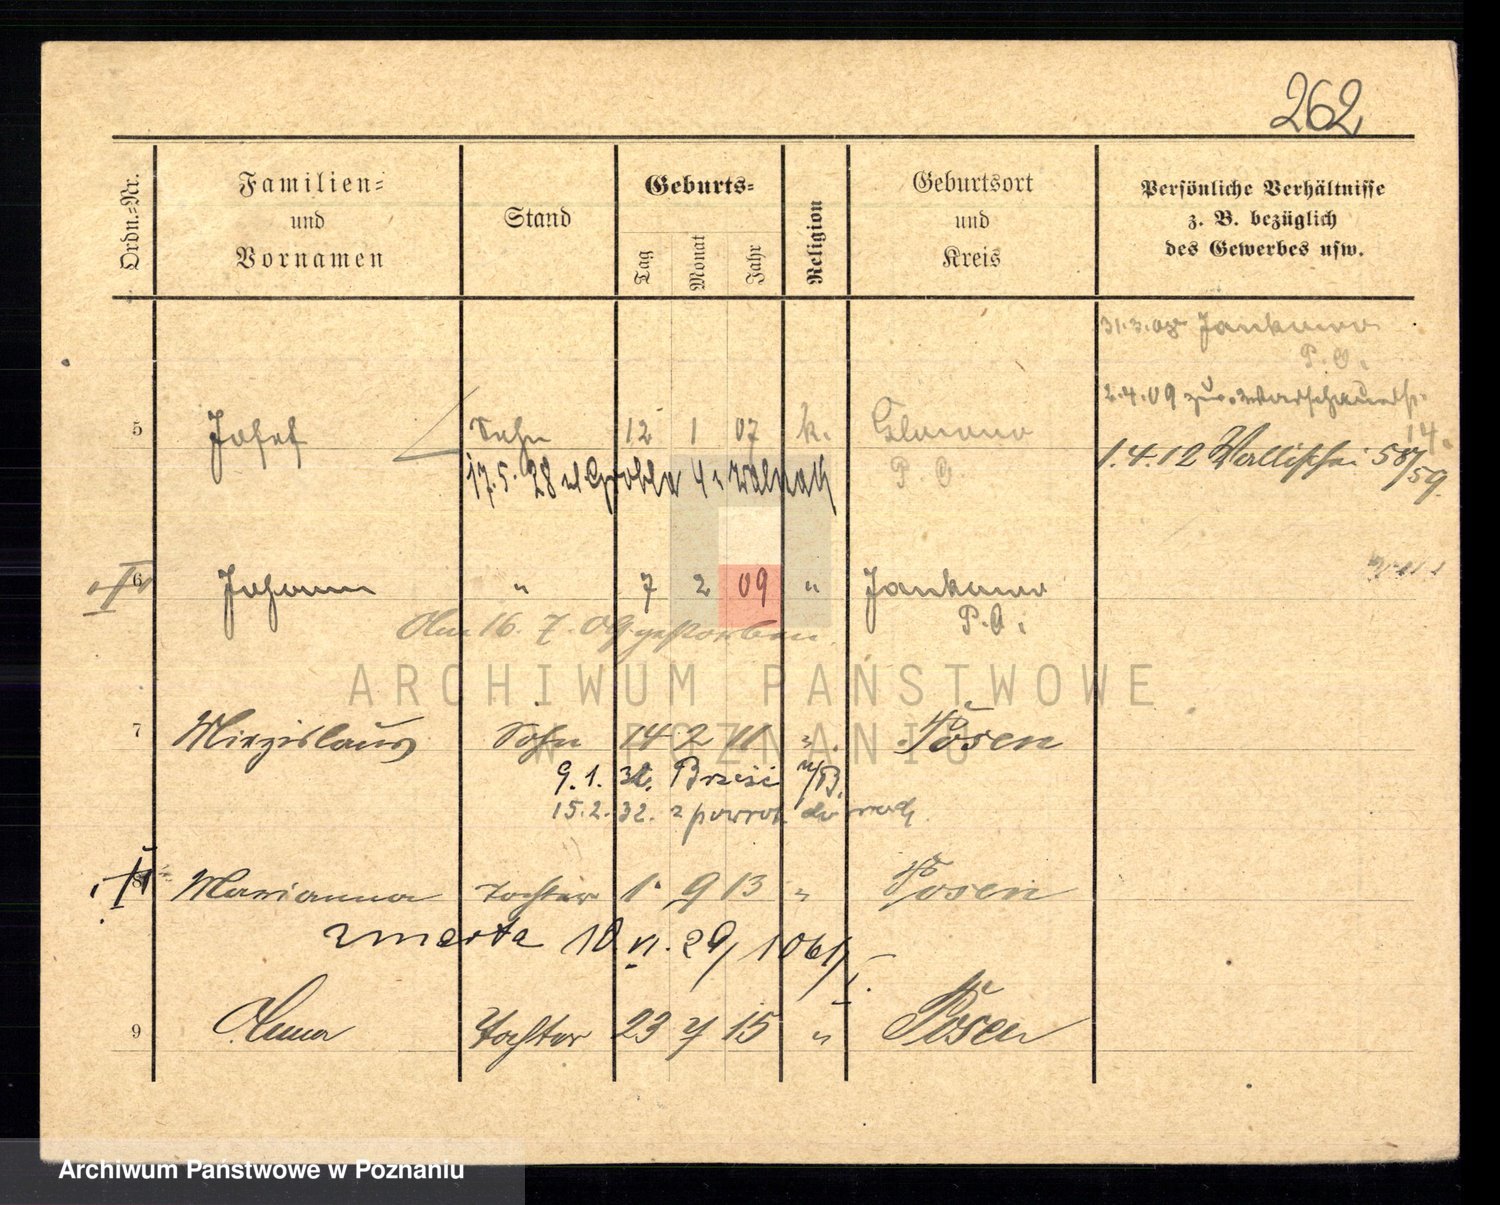 262
Ordn.=Nr.
Familien=
und
Vornamen
Stand
Geburts=
Tag
Monat
Jahr
Religion
Geburtsort
und
Kreis
Persönliche Verhältnisse
z. B. bezüglich
des Gewerbes usw.
31.3.08 Jankowo
P. O.
2.4.09 zur. Warschauerstr.
14.
5 Josef Sohn 12 1 07 k. Glowno
P. O.
1.4.12 Wallischei 58/59.
17.5.28 Grobla 4
6 Johann " 7 2 09 " Jankowo
P. O.
Am 16. 7. 09 gestorben.
ARCHIWUM PAŃSTWOWE
W POZNANIU
7 Miezislaus Sohn 14 2 11 " Posen
9.1. 32. Brześć n/B.
15.2.32. z powrot. do
8 Marianna Tochter 1. 9 13 " Posen
zmarła 10 VI. 29/1061/
I.
9 Anna Tochter 23 7 15 " Posen
Archiwum Państwowe w Poznaniu